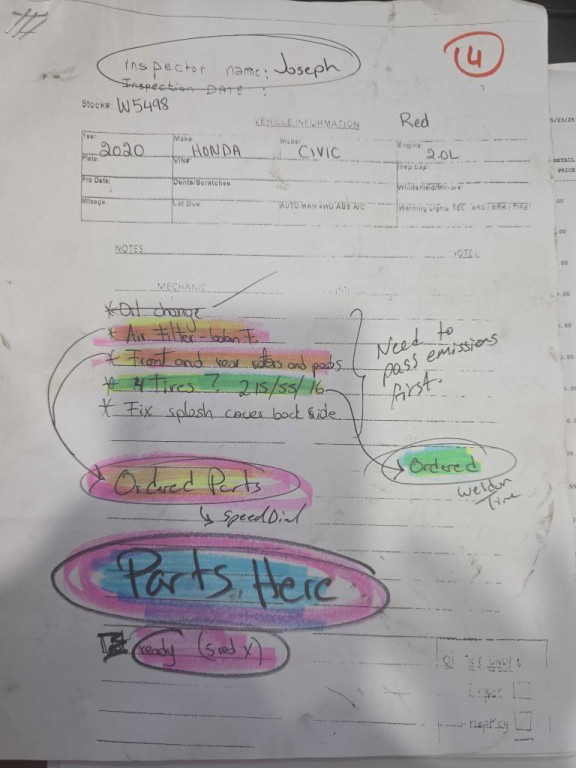 Inspector name: Joseph
14
Inspection DATE :
Stock#: W5498
VEHICLE INFORMATION
Red
Year: 2020 Make HONDA Model CIVIC Engine 2.0L
Plate: VIN#
Pro Date: Dents/Scratches Windshield/Mirrors:
Mileage: Lot Duo AUTO MAN 4WD ABS A/C Warning Lights:
NOTES
MECHANIC
* Oil change
* Air Filter -
* Front and rear and pads
* 4 Tires ? 215/55/16
* Fix splash cover back side
Need to
pass emissions
first.
Ordered
Weldon
Tire
Ordered Parts
↳ SpeedDial
Parts Here
ready
5/23/25
RETAIL
PRICE